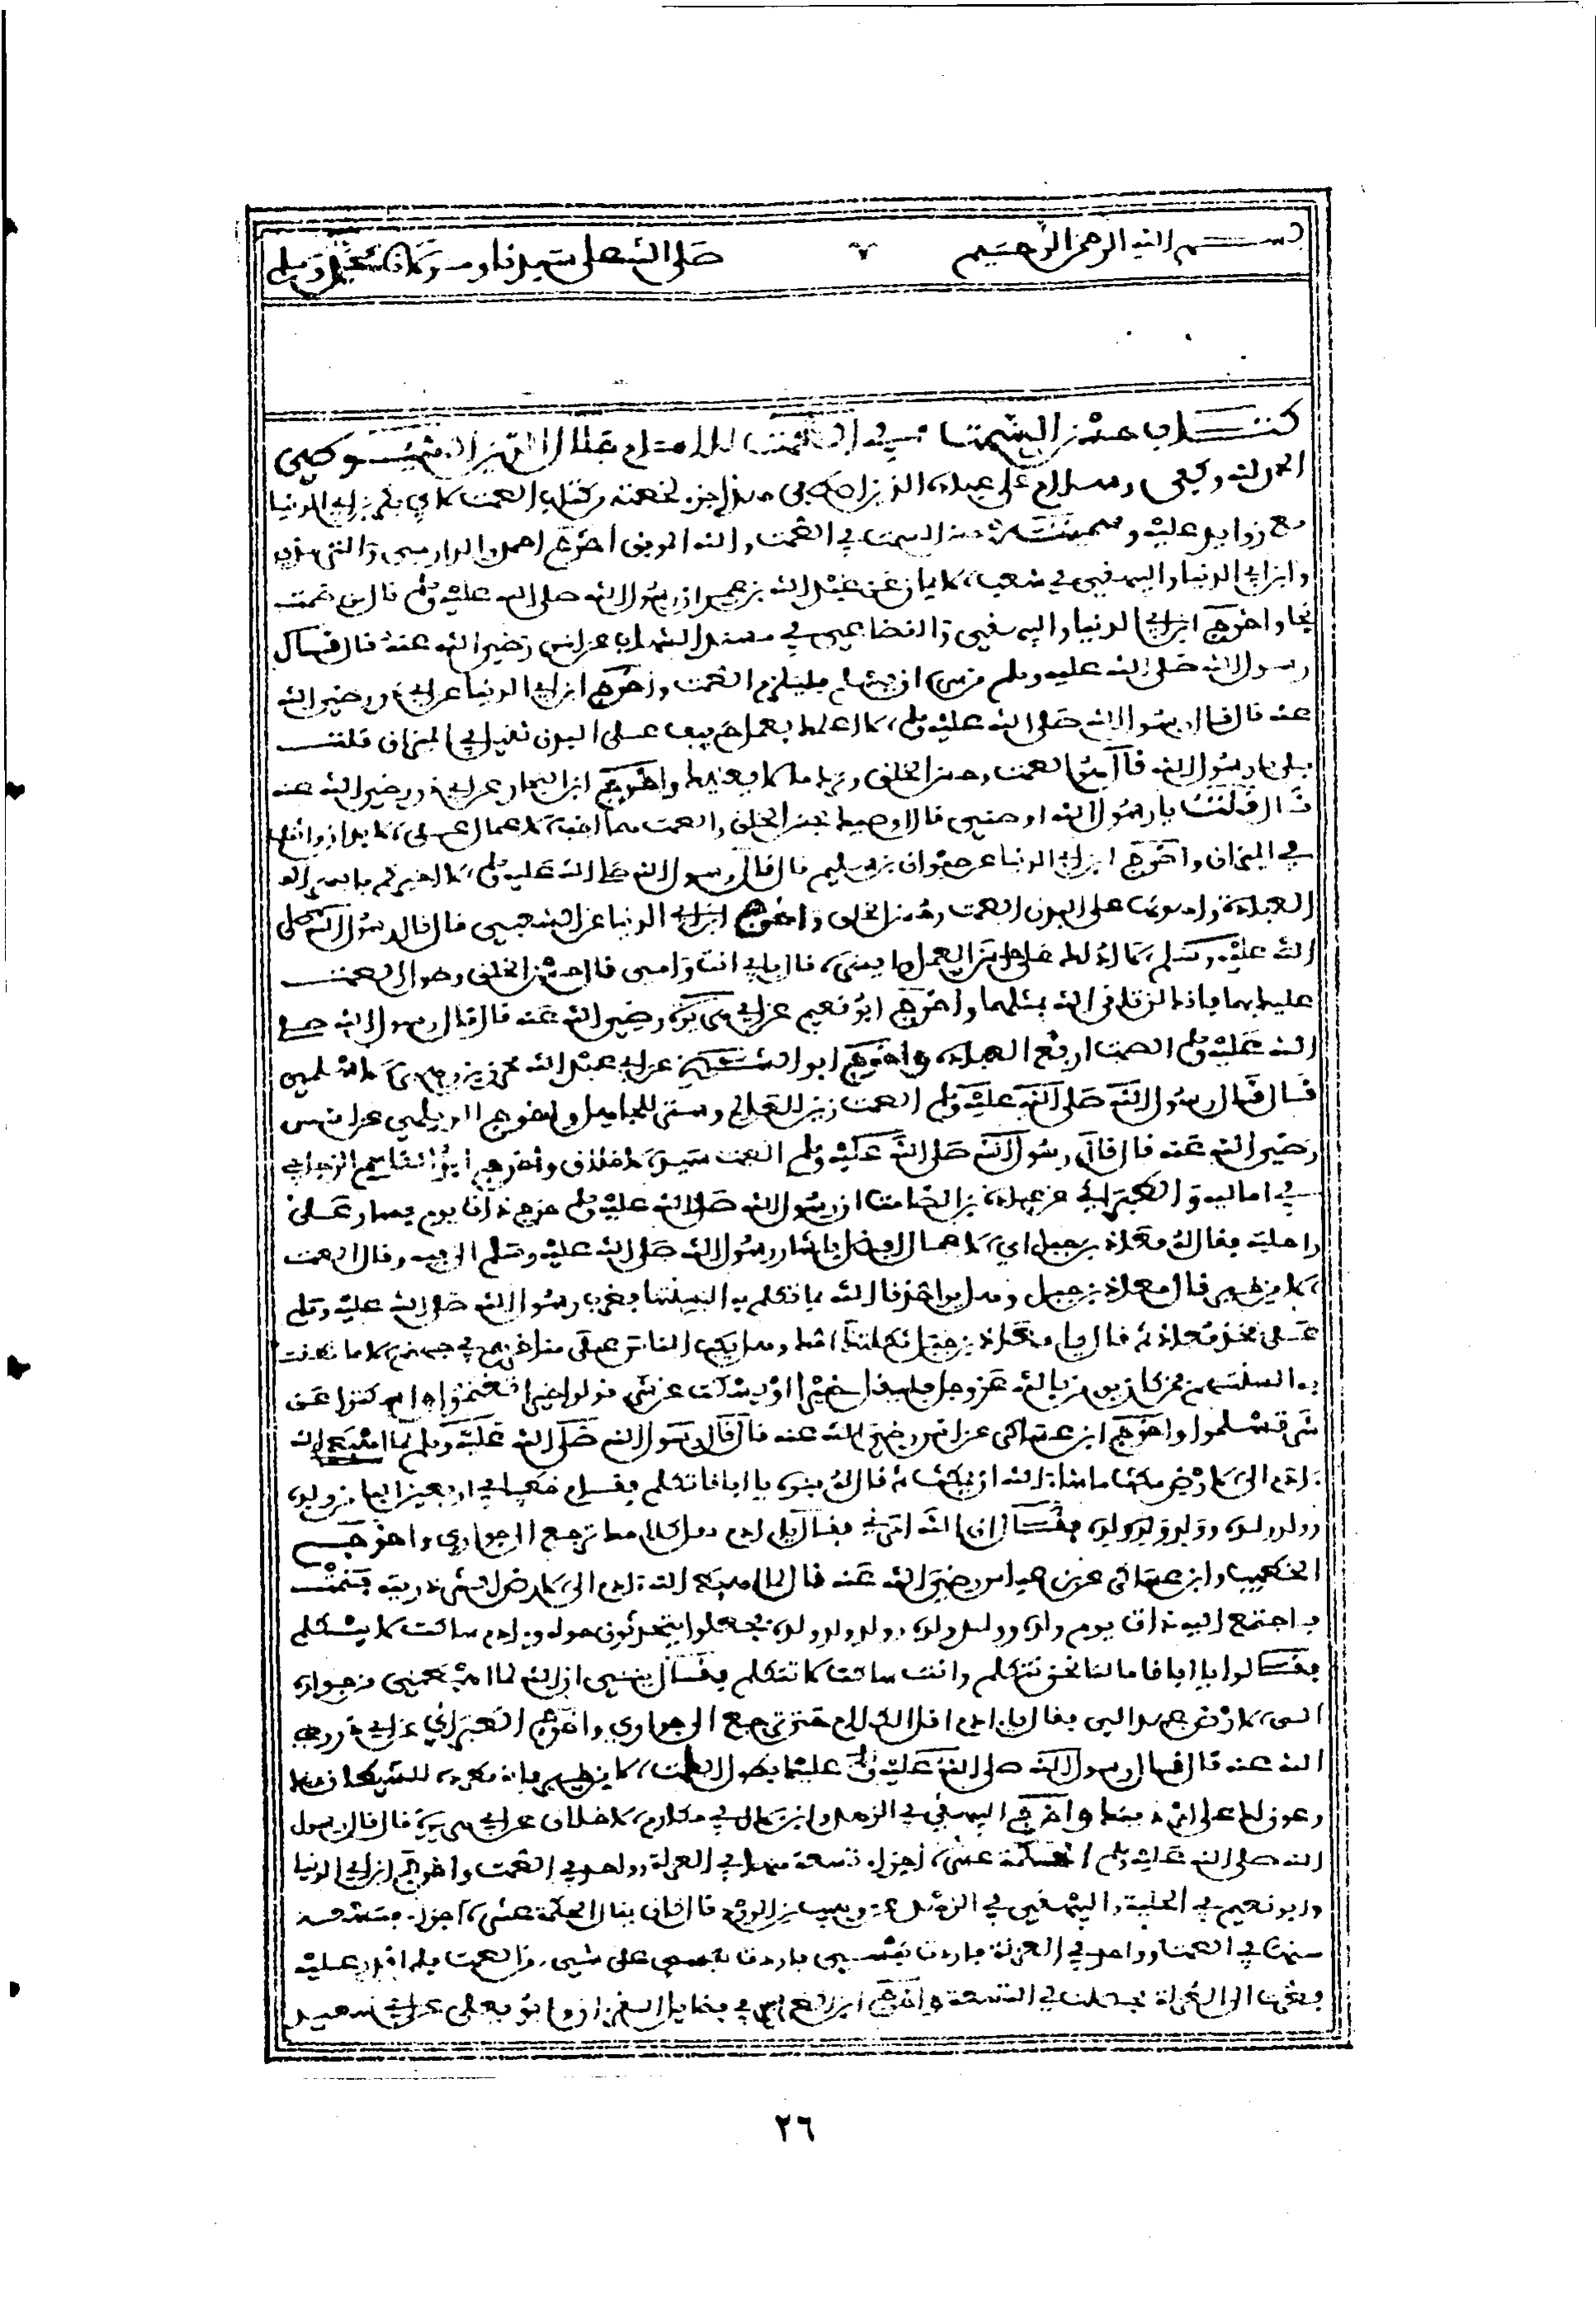 بسم الله الرحمن الرحيم صلى الله على سيدنا ومولانا محمد وسلم
كتاب حسن السمت في الصمت للامام جلال الدين السيوطي
الحمد لله وكفى وسلام على عباده الذين اصطفى هذا جزء لخصته من كتاب الصمت لابن ابي الدنيا
مع زوايد عليه وسميته حسن السمت في الصمت والله الموفق اخرج احمد والدارمي والترمذي
وابن ابي الدنيا والبيهقي في شعب الايمان عن عبد الله بن عمر ان رسول الله صلى الله عليه وسلم قال من صمت
نجا واخرج ابن ابي الدنيا والبيهقي والقضاعي في مسند الشهاب عن انس رضي الله عنه قال قال
رسول الله صلى الله عليه وسلم من سره ان يسلم فليلزم الصمت واخرج ابن ابي الدنيا عن ابي ذر رضي الله
عنه قال قال رسول الله صلى الله عليه وسلم الا اعلمك بعمل خفيف على البدن ثقيل في الميزان قلت
بلى يا رسول الله قال الصمت وحسن الخلق وترك ما لا يعنيك واخرج ابن النجار عن ابي ذر رضي الله عنه
قال قلت يا رسول الله اوصني قال اوصيك بحسن الخلق والصمت هما اخف الاعمال على الابدان واثقلها
في الميزان واخرج ابن ابي الدنيا عن صفوان بن سليم قال قال رسول الله صلى الله عليه وسلم الا اخبركم بايسر
العبادة واهونها على البدن الصمت وحسن الخلق واخرج ابن ابي الدنيا عن الشعبي قال قال رسول الله صلى
الله عليه وسلم الا ادلك على ايسر العمل قال بابي انت وامي قال حسن الخلق وطول الصمت
عليك بهما فانك لن تلقى الله بمثلهما واخرج ابو نعيم عن ابي هريرة رضي الله عنه قال قال رسول الله صلى
الله عليه وسلم الصمت ارفع العبادة واخرج ابو الشيخ عن ابي عبد الله محرز بن زهير الاسلمي
قال قال رسول الله صلى الله عليه وسلم الصمت زين للعالم وستر للجاهل واخرج الديلمي عن انس
رضي الله عنه قال قال رسول الله صلى الله عليه وسلم الصمت سيد الاخلاق واخرج ابو القاسم الزجاجي
في اماليه والطبراني عن عبادة بن الصامت ان رسول الله صلى الله عليه وسلم خرج ذات يوم على
راحلته فقال له معاذ بن جبل اي الاعمال افضل فاشار رسول الله صلى الله عليه وسلم الى فيه وقال الصمت
الا من خير قال معاذ بن جبل وهل يواخذنا الله بما تتكلم به السنتنا فضرب رسول الله صلى الله عليه وسلم
على فخذ معاذ ثم قال يا معاذ بن جبل ثكلتك امك وهل يكب الناس على مناخرهم في جهنم الا ما نطقت
به السنتهم فمن كان يومن بالله عز وجل فليقل خيرا او يسكت عن شر قولوا خيرا تغنموا او اسكتوا عن
شر تسلموا واخرج ابن عساكر عن انس رضي الله عنه قال قال رسول الله صلى الله عليه وسلم لما اهبط الله
ادم الى الارض مكث ما شاء الله ان يمكث ثم قال له بنوه يا ابانا تكلم فقام خطيبا في اربعين الفا من ولده
وولد ولده وولد ولد ولده فقال ان الله امرني فقال يا ادم اقل كلامك ترجع الى جواري واخرج
الخطيب وابن عساكر عن ابن عباس رضي الله عنه قال لما اهبط الله ادم الى الارض اكثر ذريته فنمت
فاجتمع اليه ذات يوم ولده وولد ولده وولد ولد ولده فجعلوا يتحدثون حوله وادم ساكت لا يتكلم
فقالوا يا ابانا ما لنا نحن نتكلم وانت ساكت لا تتكلم فقال يا بني ان الله لما اهبطني من جواره
الى الارض عهد الي فقال يا ادم اقل الكلام حتى ترجع الى جواري واخرج الطبراني عن ابي ذر رضي
الله عنه قال قال رسول الله صلى الله عليه وسلم عليك بطول الصمت الا من خير فانه مطردة للشيطان عنك
وعون لك على امر دينك واخرج البيهقي في الزهد وابن لال في مكارم الاخلاق عن ابي هريرة قال قال رسول
الله صلى الله عليه وسلم الحكمة عشرة اجزاء تسعة منها في العزلة وواحد في الصمت واخرج ابن ابي الدنيا
وابو نعيم في الحلية والبيهقي في الزهد عن وهيب بن الورد قال كان يقال الحكمة عشرة اجزاء فتسعة
منها في الصمت وواحد في العزلة فاردت نفسي على شيء من الصمت فلم اقدر عليه
فصرت الى العزلة فحصلت لي التسعة واخرج ابن الضريس في فضايل القران وابو يعلى عن ابي سعيد
٢٦